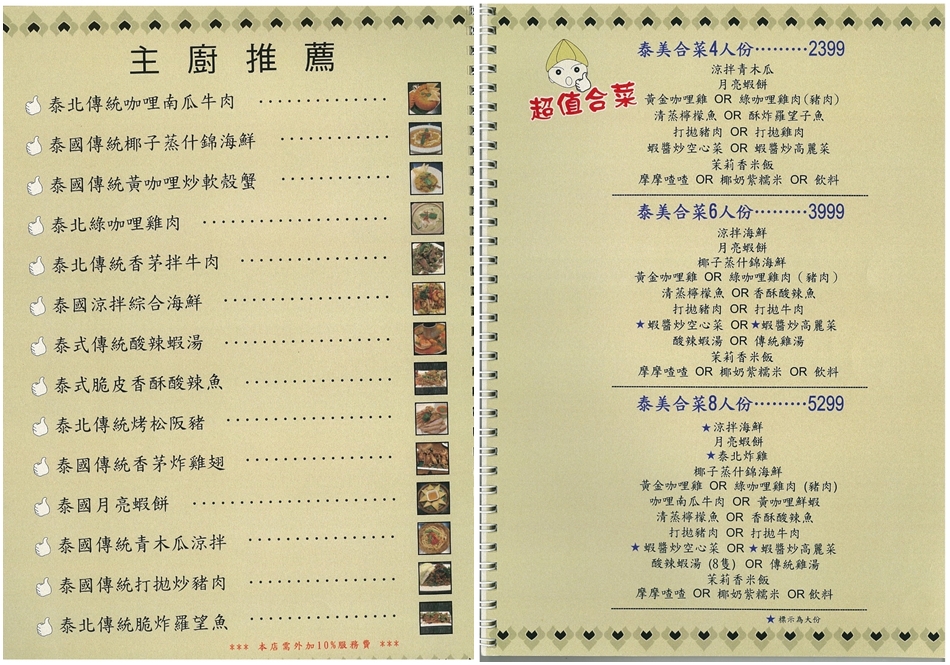 主廚推薦
泰北傳統咖哩南瓜牛肉 ··················
泰國傳統椰子蒸什錦海鮮 ···············
泰國傳統黃咖哩炒軟殼蟹 ···············
泰北綠咖哩雞肉 ·······················
泰北傳統香茅拌牛肉 ···················
泰國涼拌綜合海鮮 ·····················
泰式傳統酸辣蝦湯 ·····················
泰式脆皮香酥酸辣魚 ···················
泰北傳統烤松阪豬 ·····················
泰國傳統香茅炸雞翅 ···················
泰國月亮蝦餅 ·························
泰國傳統青木瓜涼拌 ···················
泰國傳統打拋炒豬肉 ···················
泰北傳統脆炸羅望魚 ···················
*** 本店需外加10%服務費 ***
超值合菜
泰美合菜4人份·········2399
涼拌青木瓜
月亮蝦餅
黃金咖哩雞 OR 綠咖哩雞肉(豬肉)
清蒸檸檬魚 OR 酥炸羅望子魚
打拋豬肉 OR 打拋雞肉
蝦醬炒空心菜 OR 蝦醬炒高麗菜
茉莉香米飯
摩摩喳喳 OR 椰奶紫糯米 OR 飲料
泰美合菜6人份·········3999
涼拌海鮮
月亮蝦餅
椰子蒸什錦海鮮
黃金咖哩雞 OR 綠咖哩雞肉(豬肉)
清蒸檸檬魚 OR 香酥酸辣魚
打拋豬肉 OR 打拋牛肉
★蝦醬炒空心菜 OR★蝦醬炒高麗菜
酸辣蝦湯 OR 傳統雞湯
茉莉香米飯
摩摩喳喳 OR 椰奶紫糯米 OR 飲料
泰美合菜8人份·········5299
★涼拌海鮮
月亮蝦餅
★泰北炸雞
椰子蒸什錦海鮮
黃金咖哩雞 OR 綠咖哩雞肉 (豬肉)
咖哩南瓜牛肉 OR 黃咖哩鮮蝦
清蒸檸檬魚 OR 香酥酸辣魚
打拋豬肉 OR 打拋牛肉
★蝦醬炒空心菜 OR ★蝦醬炒高麗菜
酸辣蝦湯 (8隻) OR 傳統雞湯
茉莉香米飯
摩摩喳喳 OR 椰奶紫糯米 OR 飲料
★ 標示為大份